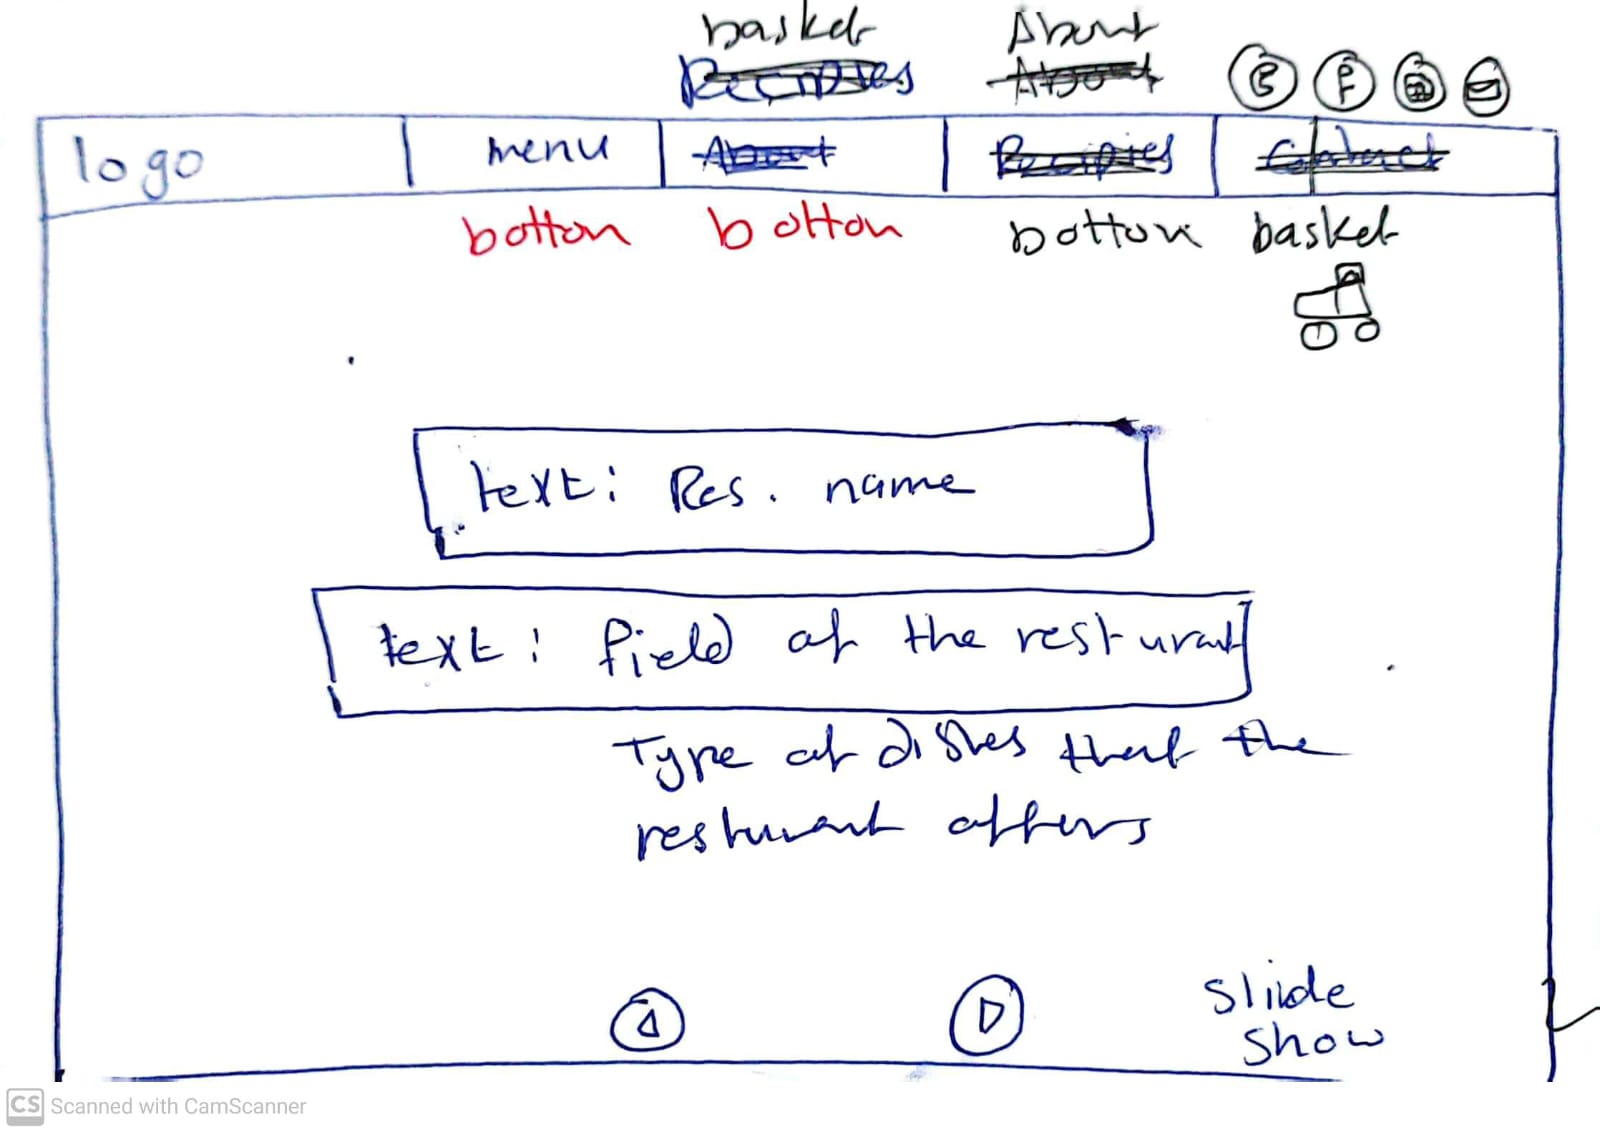 basket About
Recipies About
B F
logo menu About Recipies Contact
botton botton botton basket
text: Res. name
text: field of the resturant
Type of dishes that the
resturant offers
Sliide
show
CS Scanned with CamScanner